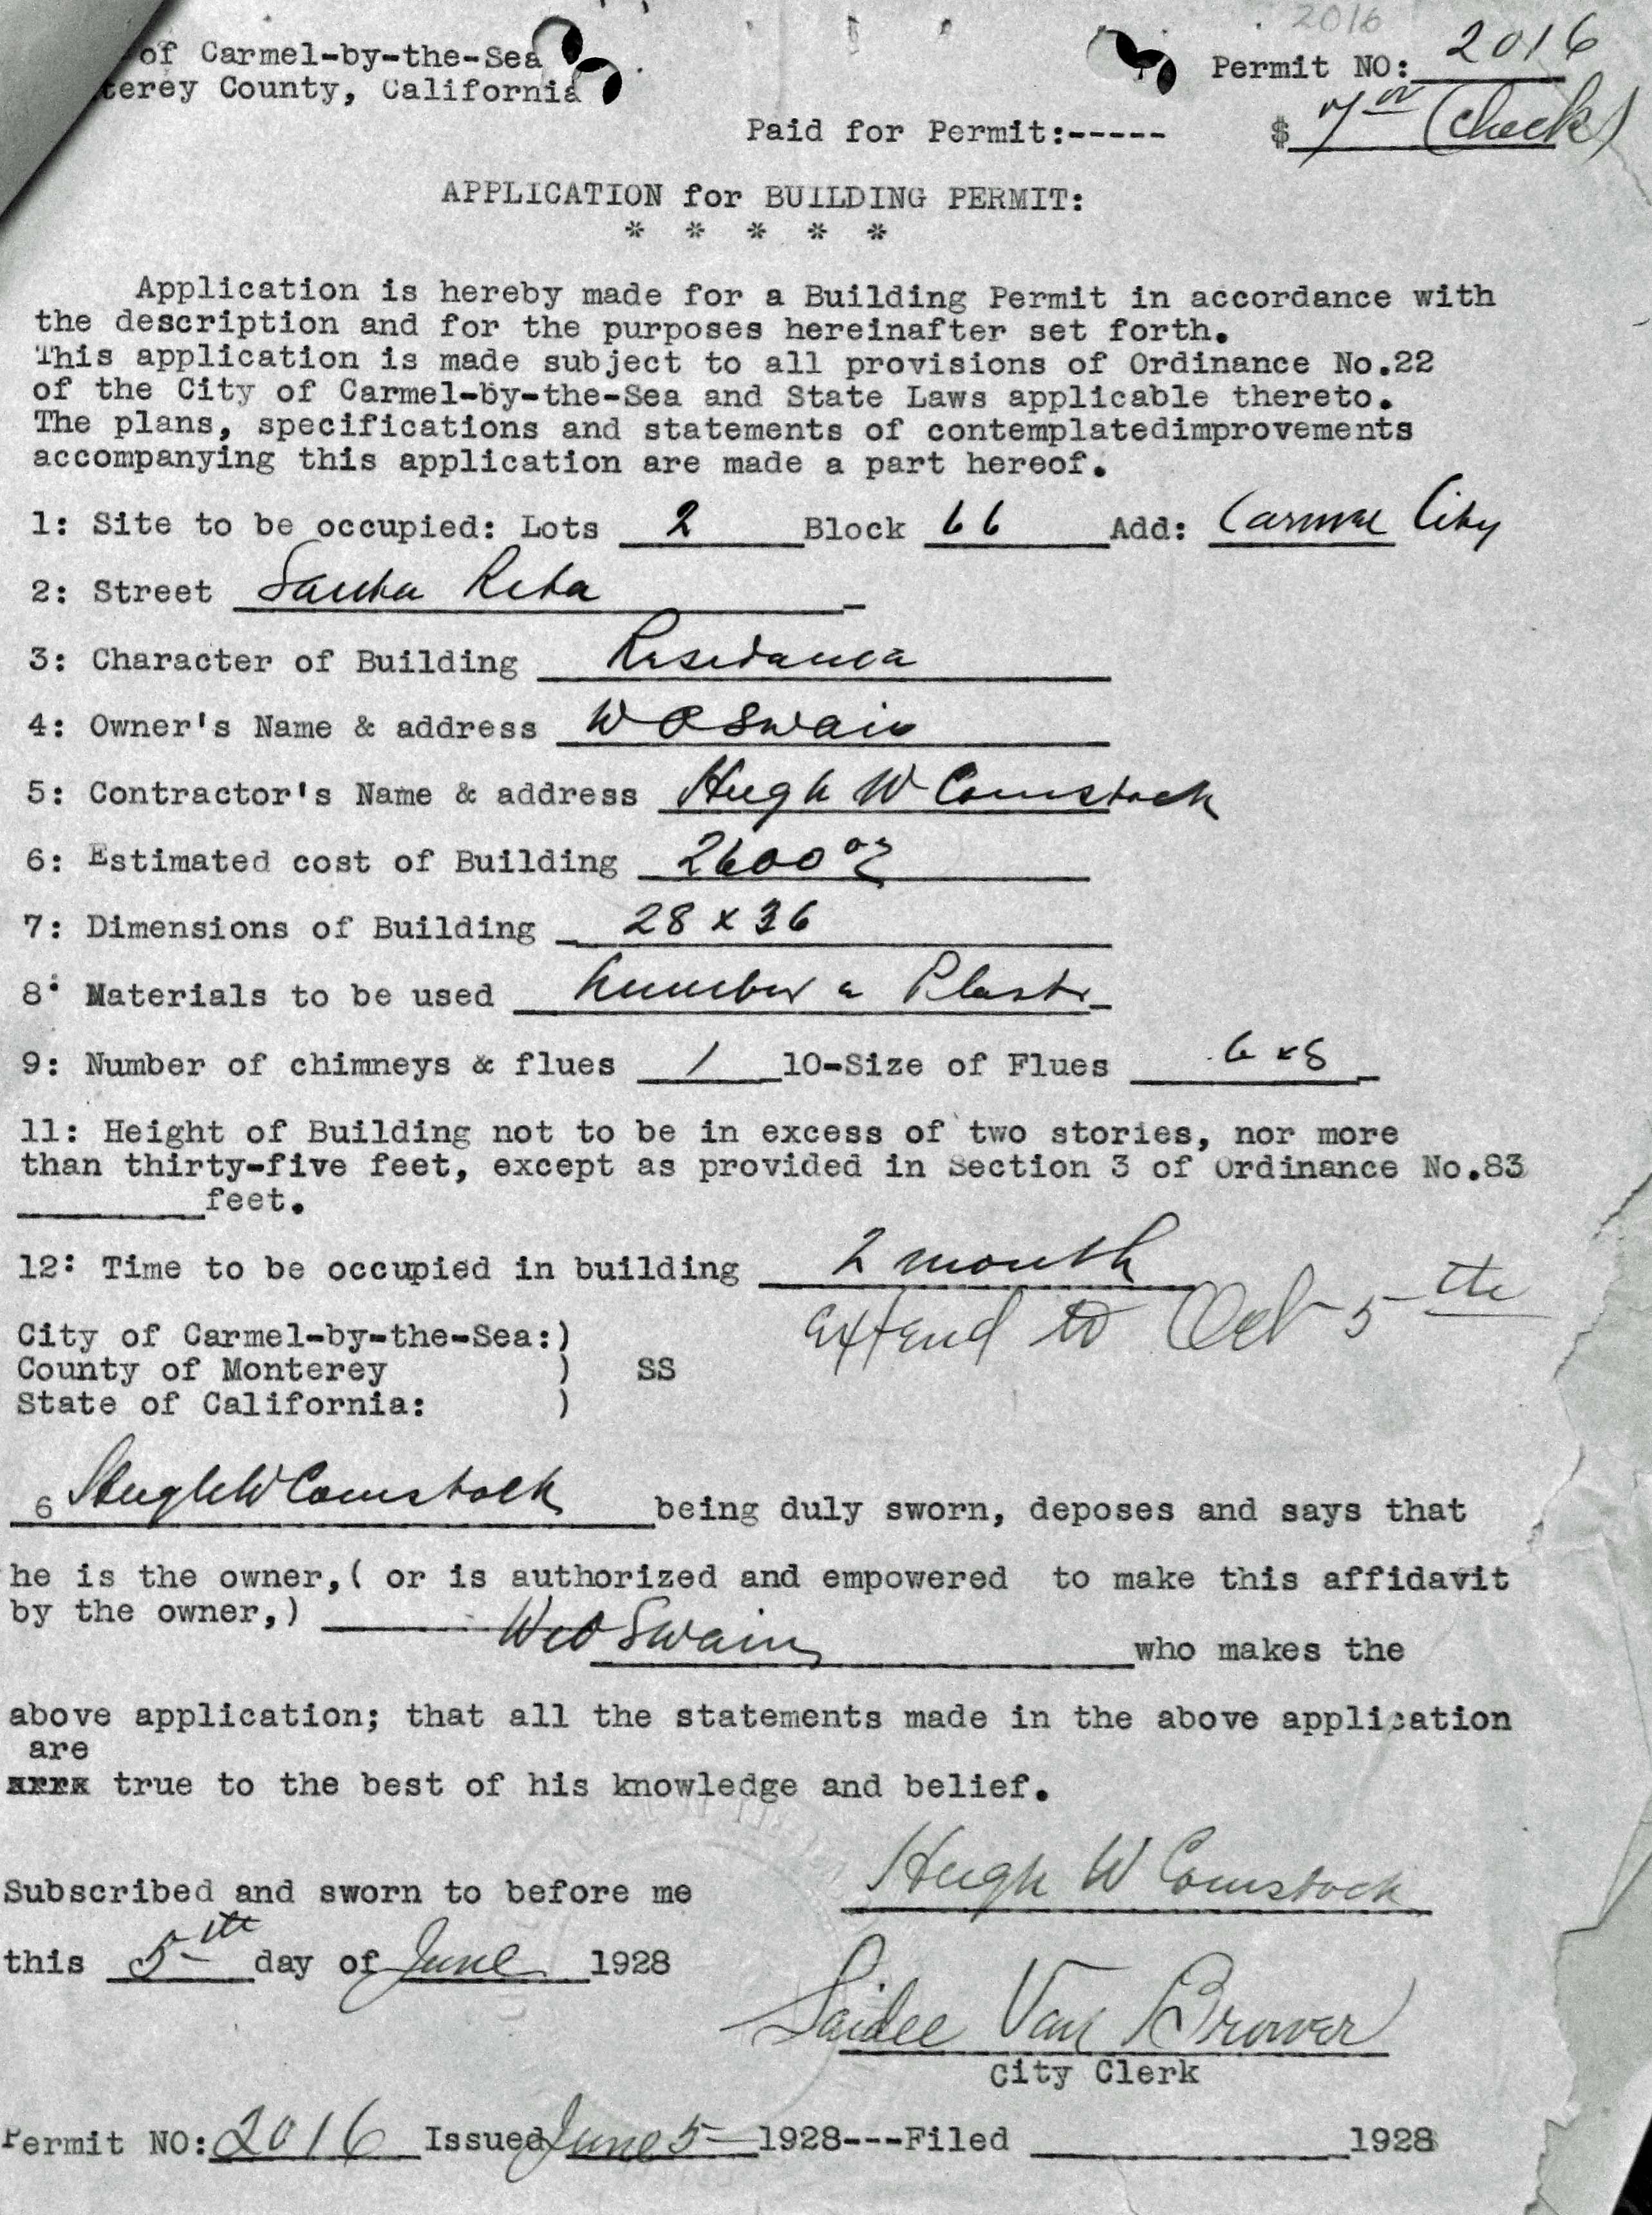 2016
of Carmel-by-the-Sea Permit NO: 2016
terey County, California
Paid for Permit:----- $ 7 00 (Check)
APPLICATION for BUILDING PERMIT:
* * * * *
Application is hereby made for a Building Permit in accordance with
the description and for the purposes hereinafter set forth.
This application is made subject to all provisions of Ordinance No.22
of the City of Carmel-by-the-Sea and State Laws applicable thereto.
The plans, specifications and statements of contemplatedimprovements
accompanying this application are made a part hereof.
1: Site to be occupied: Lots 2 Block 66 Add: Carmel City
2: Street Santa Rita
3: Character of Building Residence
4: Owner's Name & address W O Swain
5: Contractor's Name & address Hugh W Comstock
6: Estimated cost of Building 2600 00
7: Dimensions of Building 28 x 36
8: Materials to be used Lumber & Plaster
9: Number of chimneys & flues 1 10-Size of Flues 6 x 8
11: Height of Building not to be in excess of two stories, nor more
than thirty-five feet, except as provided in Section 3 of Ordinance No.83
feet.
12: Time to be occupied in building 2 month
extend to Oct 5th
City of Carmel-by-the-Sea:)
County of Monterey ) SS
State of California: )
6 Hugh W Comstock being duly sworn, deposes and says that
he is the owner,( or is authorized and empowered to make this affidavit
by the owner,) W O Swain who makes the
above application; that all the statements made in the above application
are
xxxx true to the best of his knowledge and belief.
Hugh W Comstock
Subscribed and sworn to before me
this 5th day of June 1928
Saidee Van Brower
City Clerk
Permit NO: 2016 Issued June 5 1928---Filed 1928